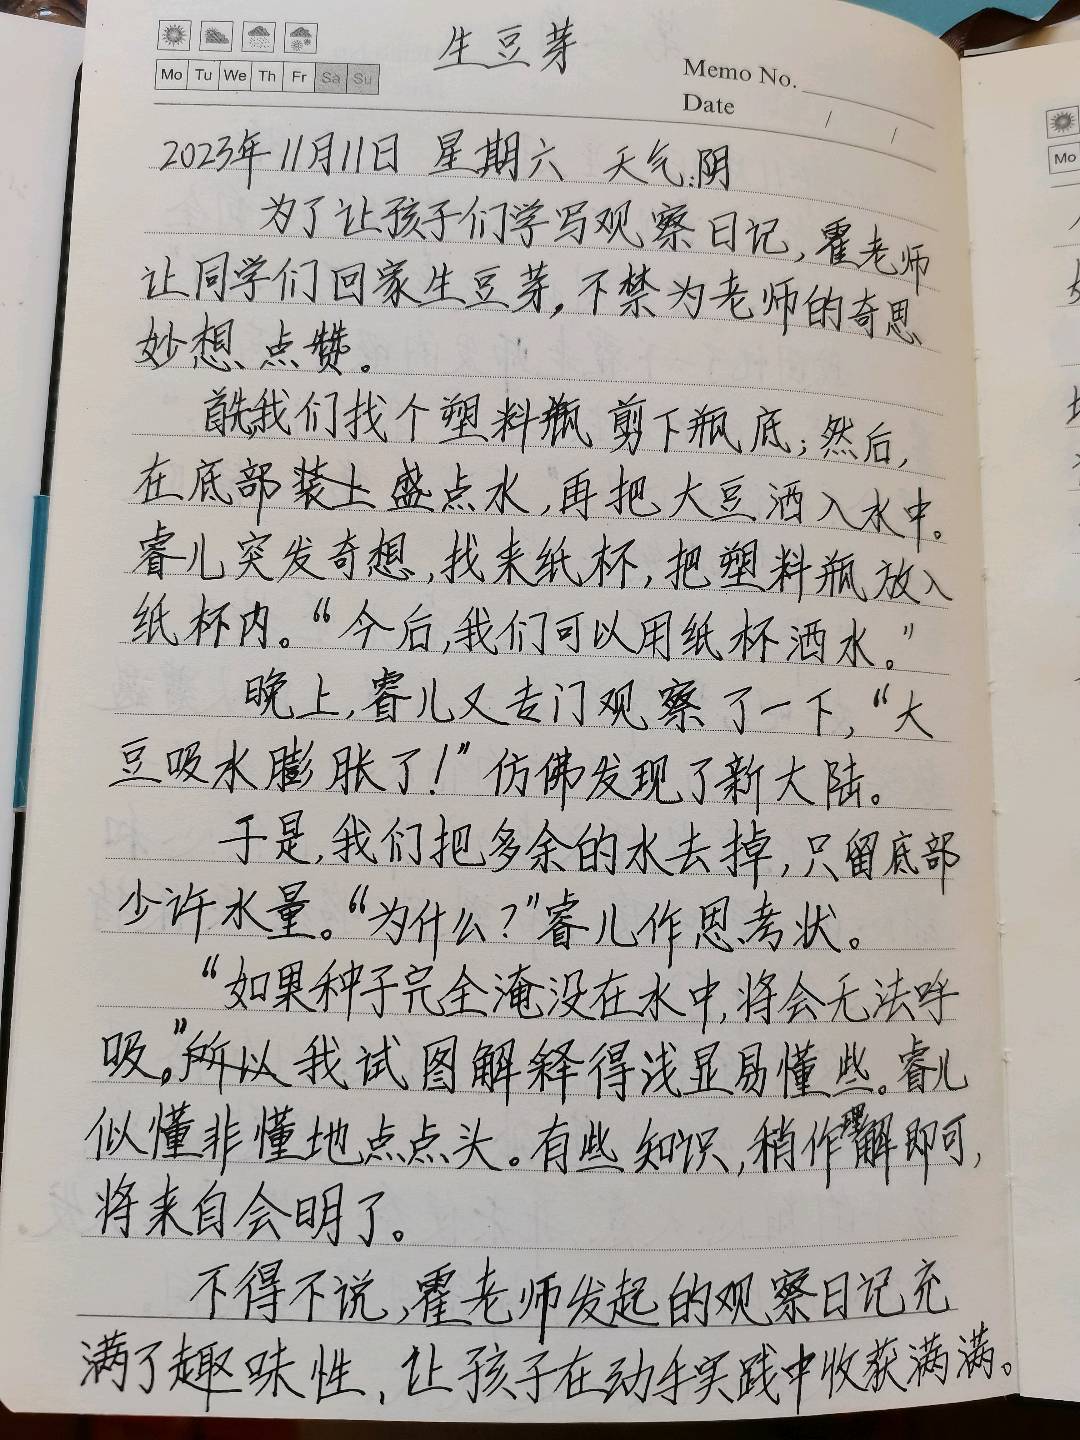 生豆芽
Mo Tu We Th Fr Sa Su
Memo No.
Date / /
2023年11月11日 星期六 天气:阴
为了让孩子们学写观察日记,霍老师
让同学们回家生豆芽,不禁为老师的奇思
妙想点赞。
首先,我们找个塑料瓶剪下瓶底;然后,
在底部装上盛点水,再把大豆洒入水中。
睿儿突发奇想,找来纸杯,把塑料瓶放入
纸杯内。“今后,我们可以用纸杯洒水。”
晚上,睿儿又专门观察了一下,“大
豆吸水膨胀了!”仿佛发现了新大陆。
于是,我们把多余的水去掉,只留底部
少许水量。“为什么?”睿儿作思考状。
“如果种子完全淹没在水中,将会无法呼
吸。”所以我试图解释得浅显易懂些。睿儿
似懂非懂地点点头。有些知识,稍作理解即可,
将来自会明了。
不得不说,霍老师发起的观察日记充
满了趣味性,让孩子在动手实践中收获满满。
Mo